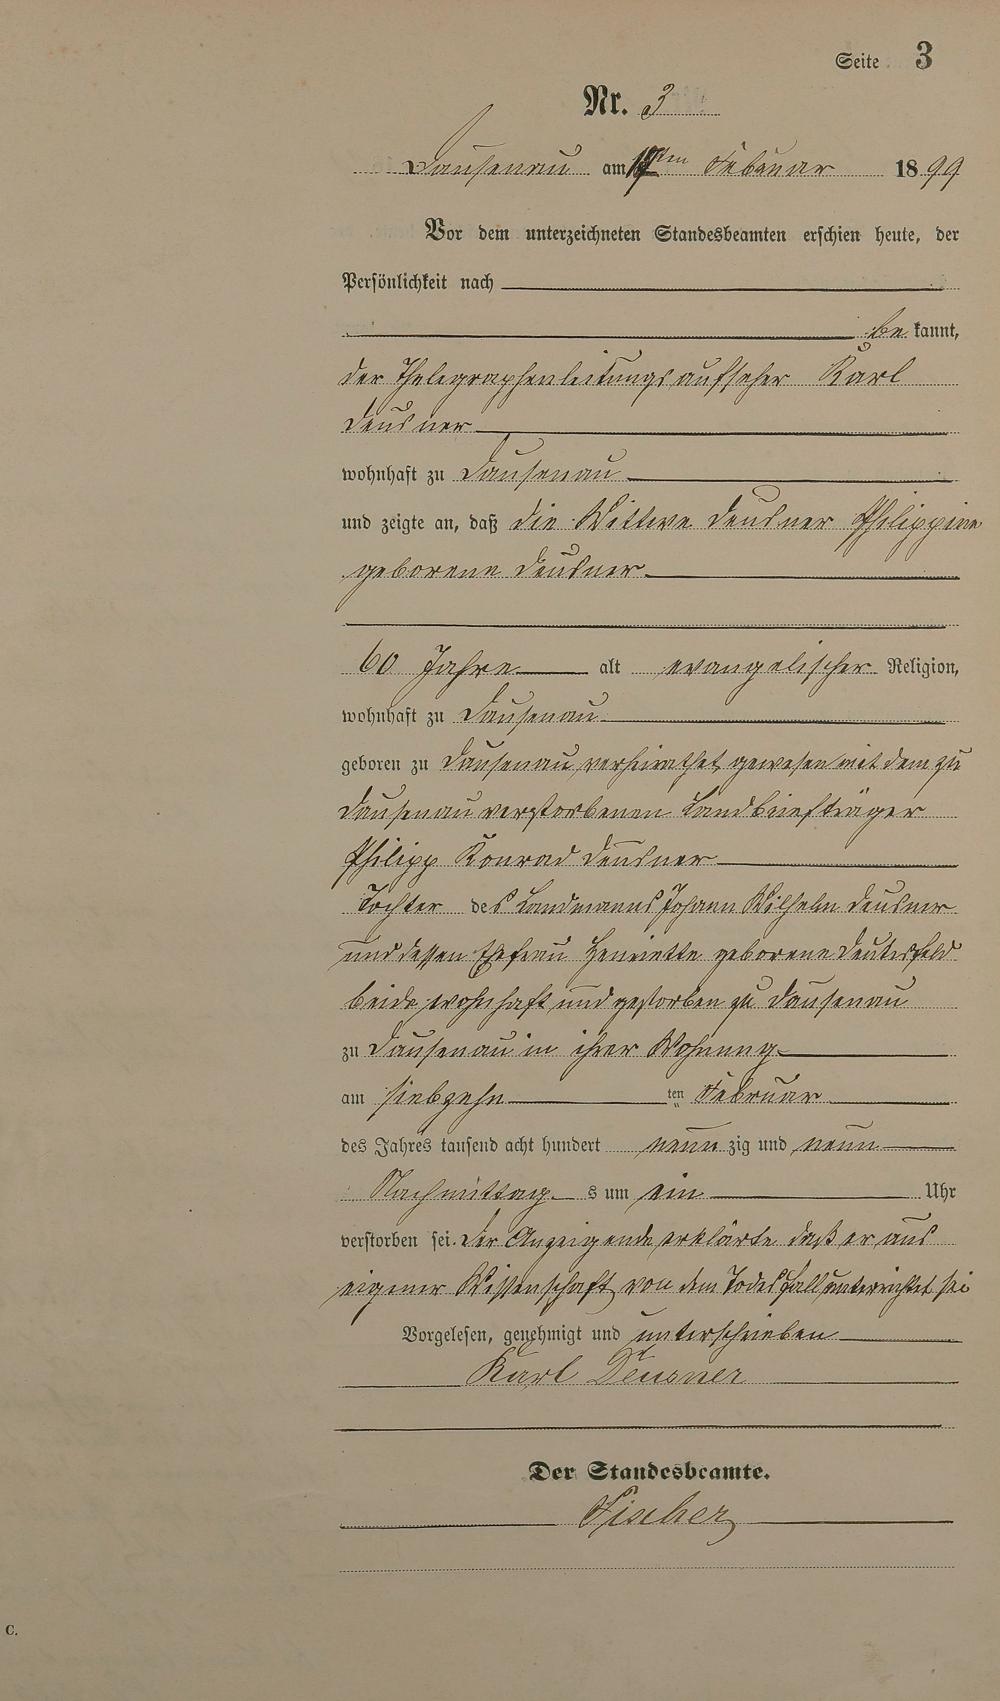 Seite 3
Nr. 3
Dausenau am 17ten Februar 1899
Vor dem unterzeichneten Standesbeamten erschien heute, der
Persönlichkeit nach
be kannt,
der Thelegraphenleitungsaufseher Karl
Deusner
wohnhaft zu Dausenau
und zeigte an, daß die Wittwe Deusner Philippine
geborene Deusner
60 Jahre alt evangelischer Religion,
wohnhaft zu Dausenau
geboren zu Dausenau, verheirathet gewesen mit dem zu
Dausenau verstorbenen Landbriefträger
Philipp Konrad Deusner
Tochter des Landmanns Johann Wilhelm Deusner
und dessen Ehefrau Henriette geborene
beide wohnhaft und gestorben zu Dausenau
zu Dausenau in ihrer Wohnung
am siebzehn ten Februar
des Jahres tausend acht hundert neun zig und neun
Nachmittag s um ein Uhr
verstorben sei. Der Anzeigende erklärte daß er aus
eigener Wissenschaft von dem Todesfall unterrichtet sei
Vorgelesen, genehmigt und unterschrieben
Karl Deusner
Der Standesbeamte.
Fischer
C.